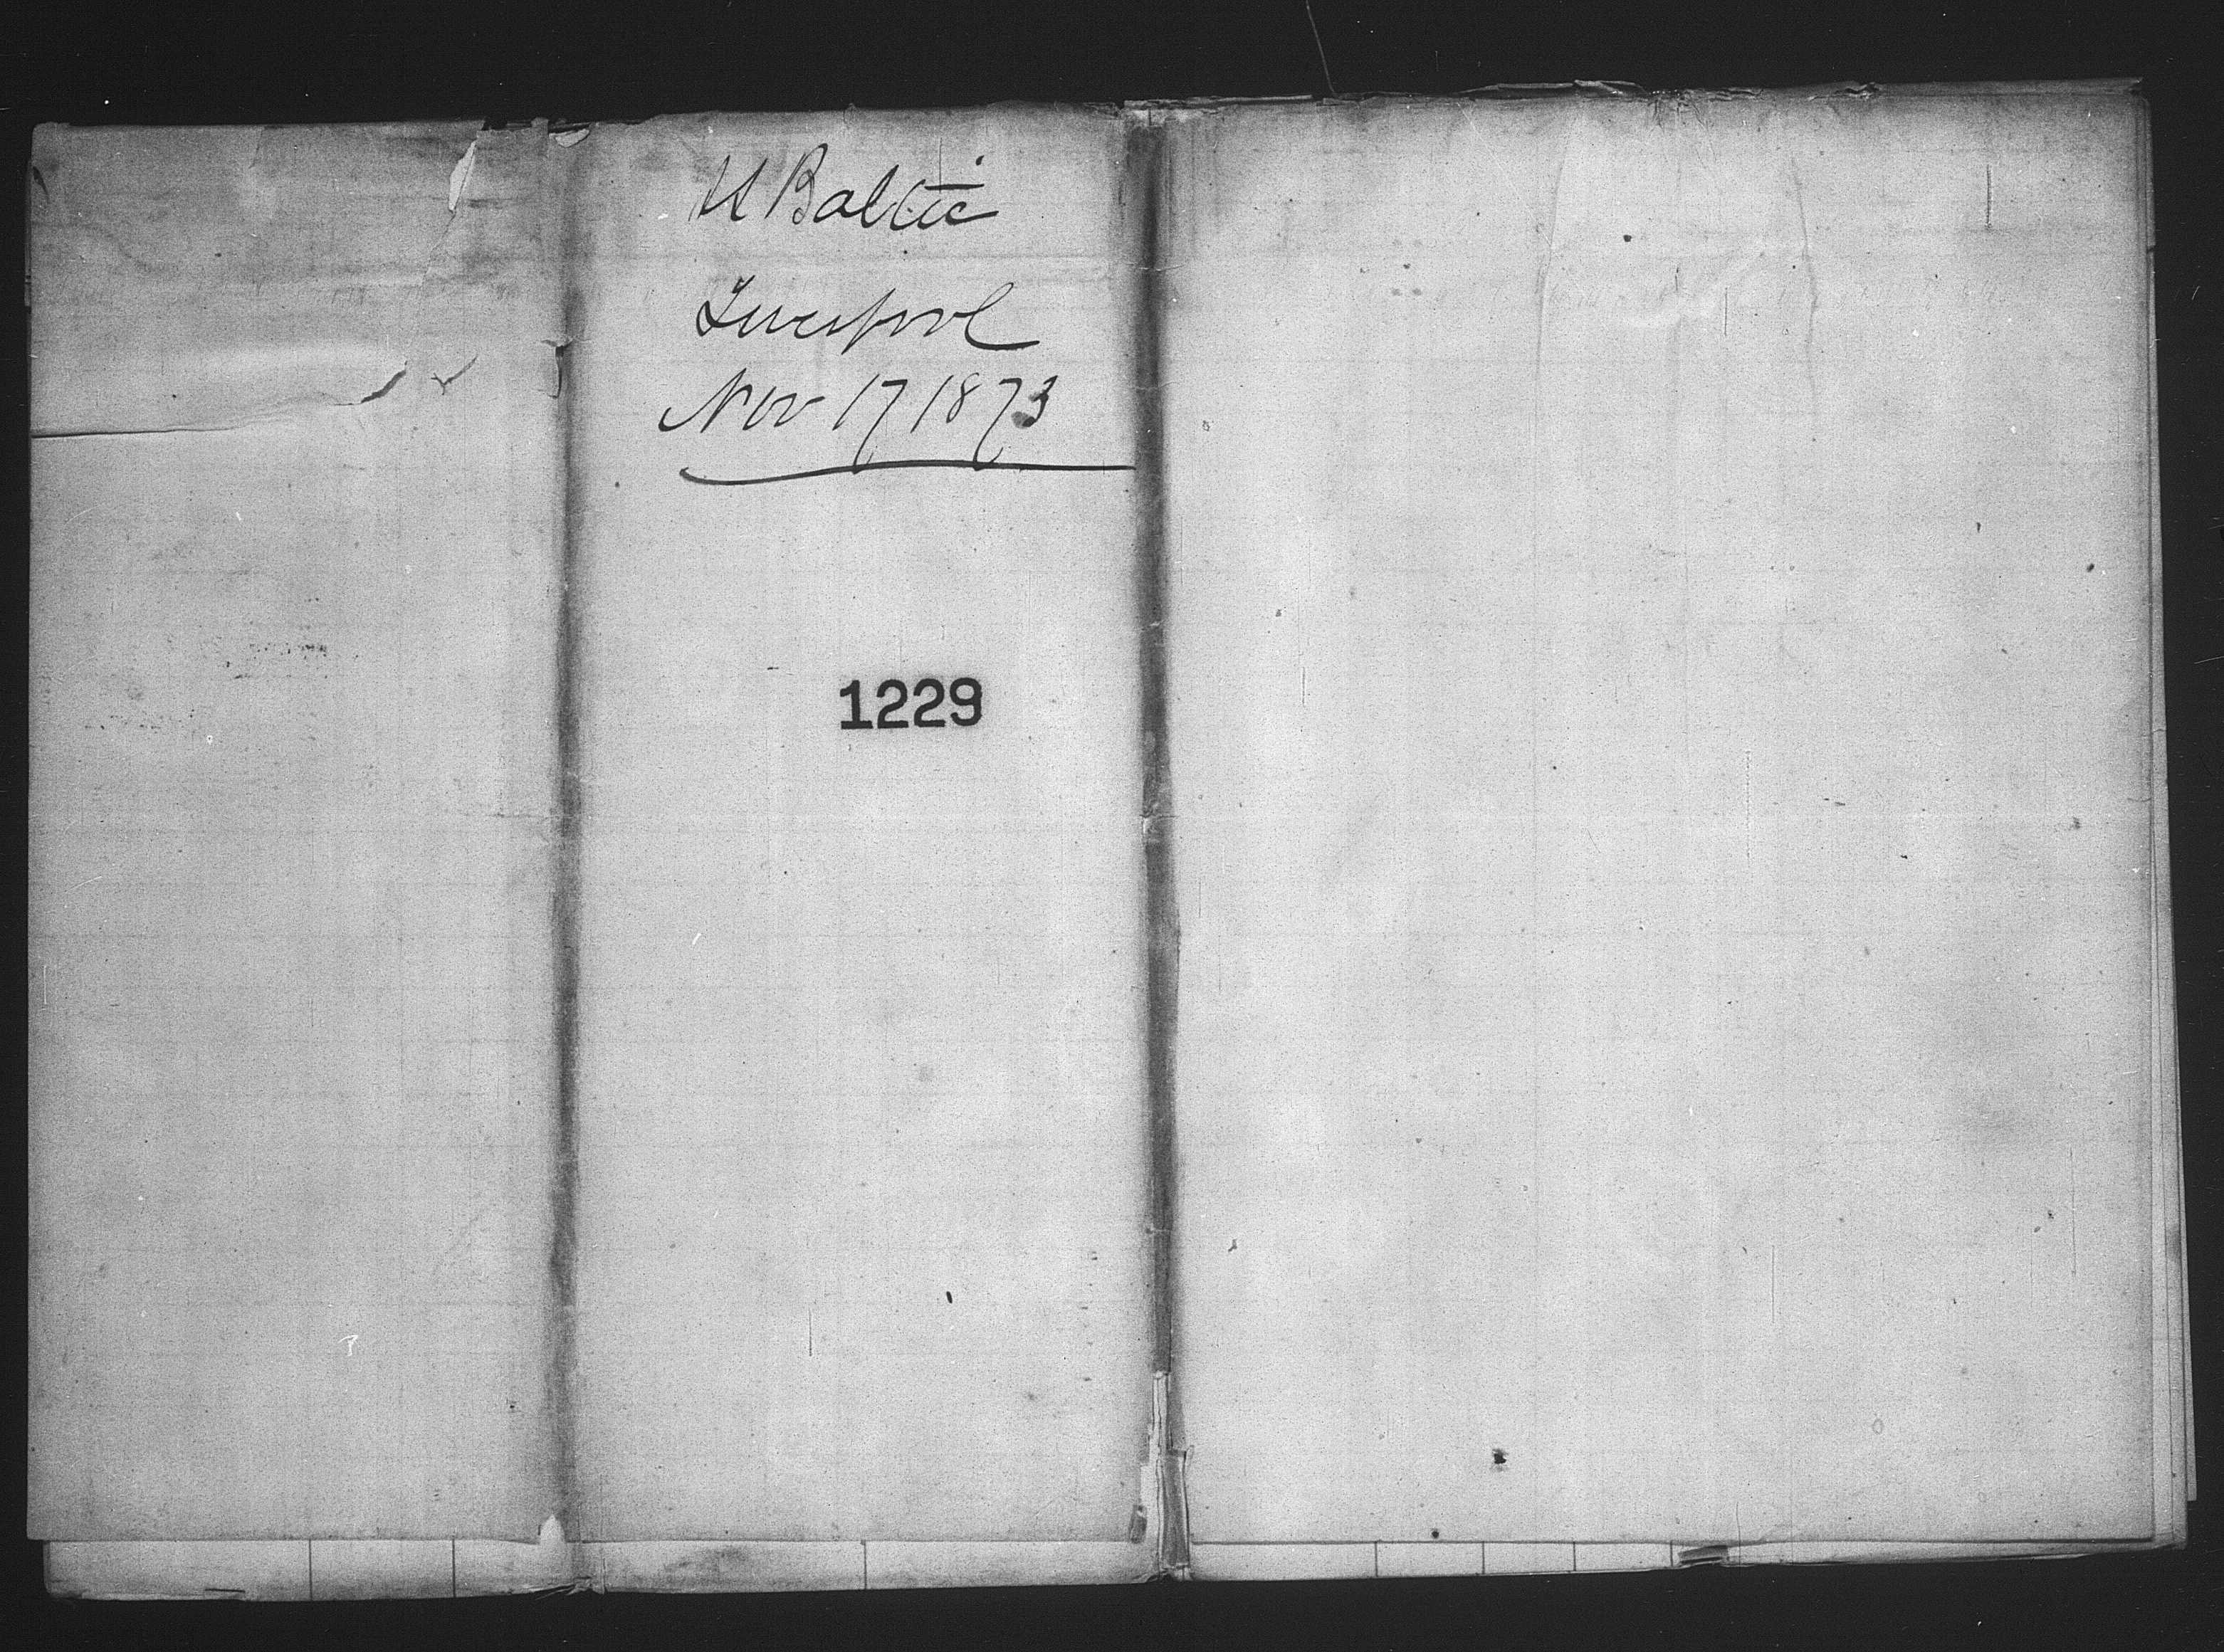 Baltic
Liverpool
Nov 17 1873
1229